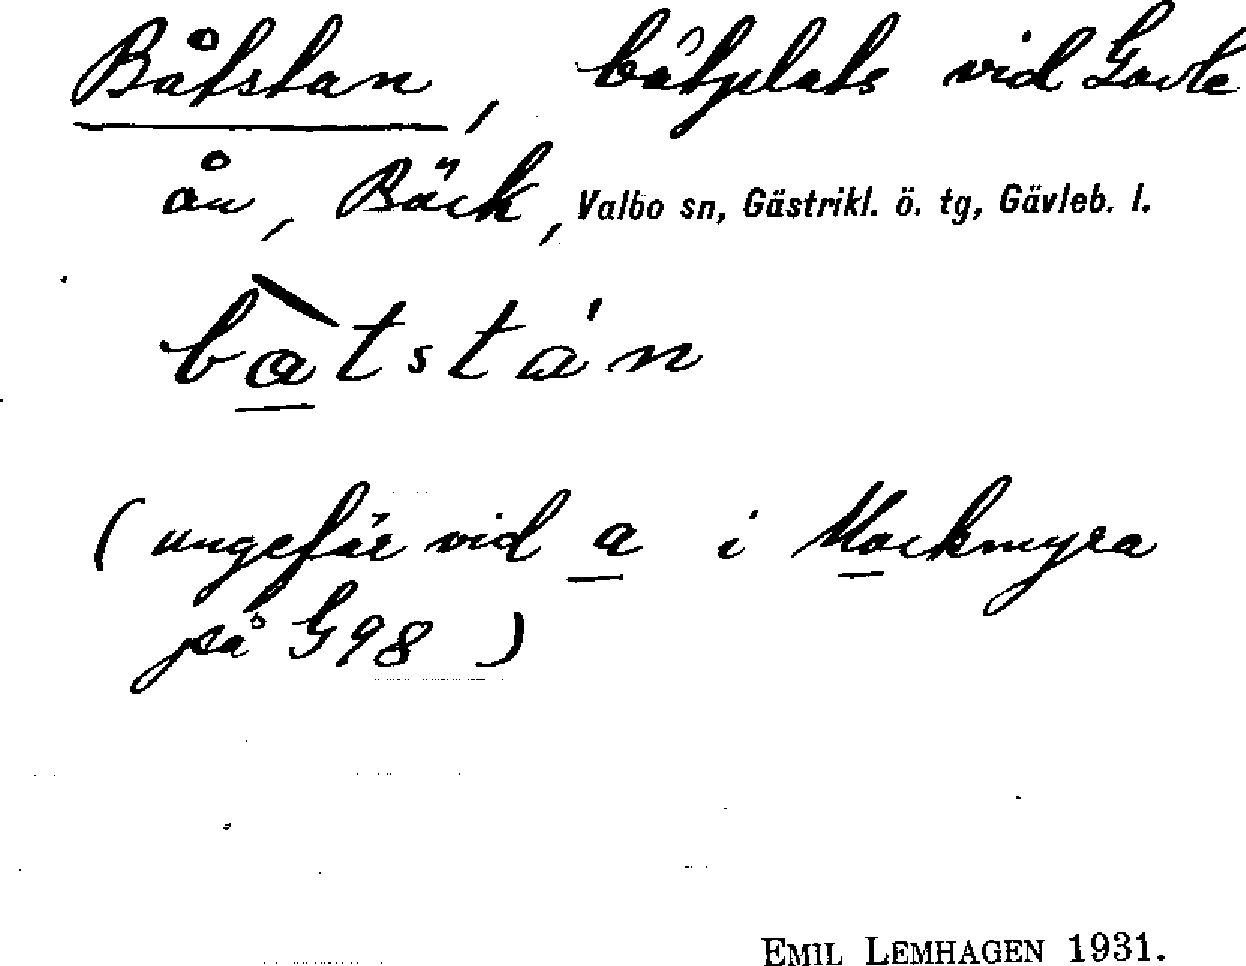 Båtstan, båtplats vid Gavle
ån, Bäck, Valbo sn, Gästrikl. ö. tg, Gävleb. l.
bàtstán
(ungefär vid a i Mackmyra
på G98)
EMIL LEMHAGEN 1931.